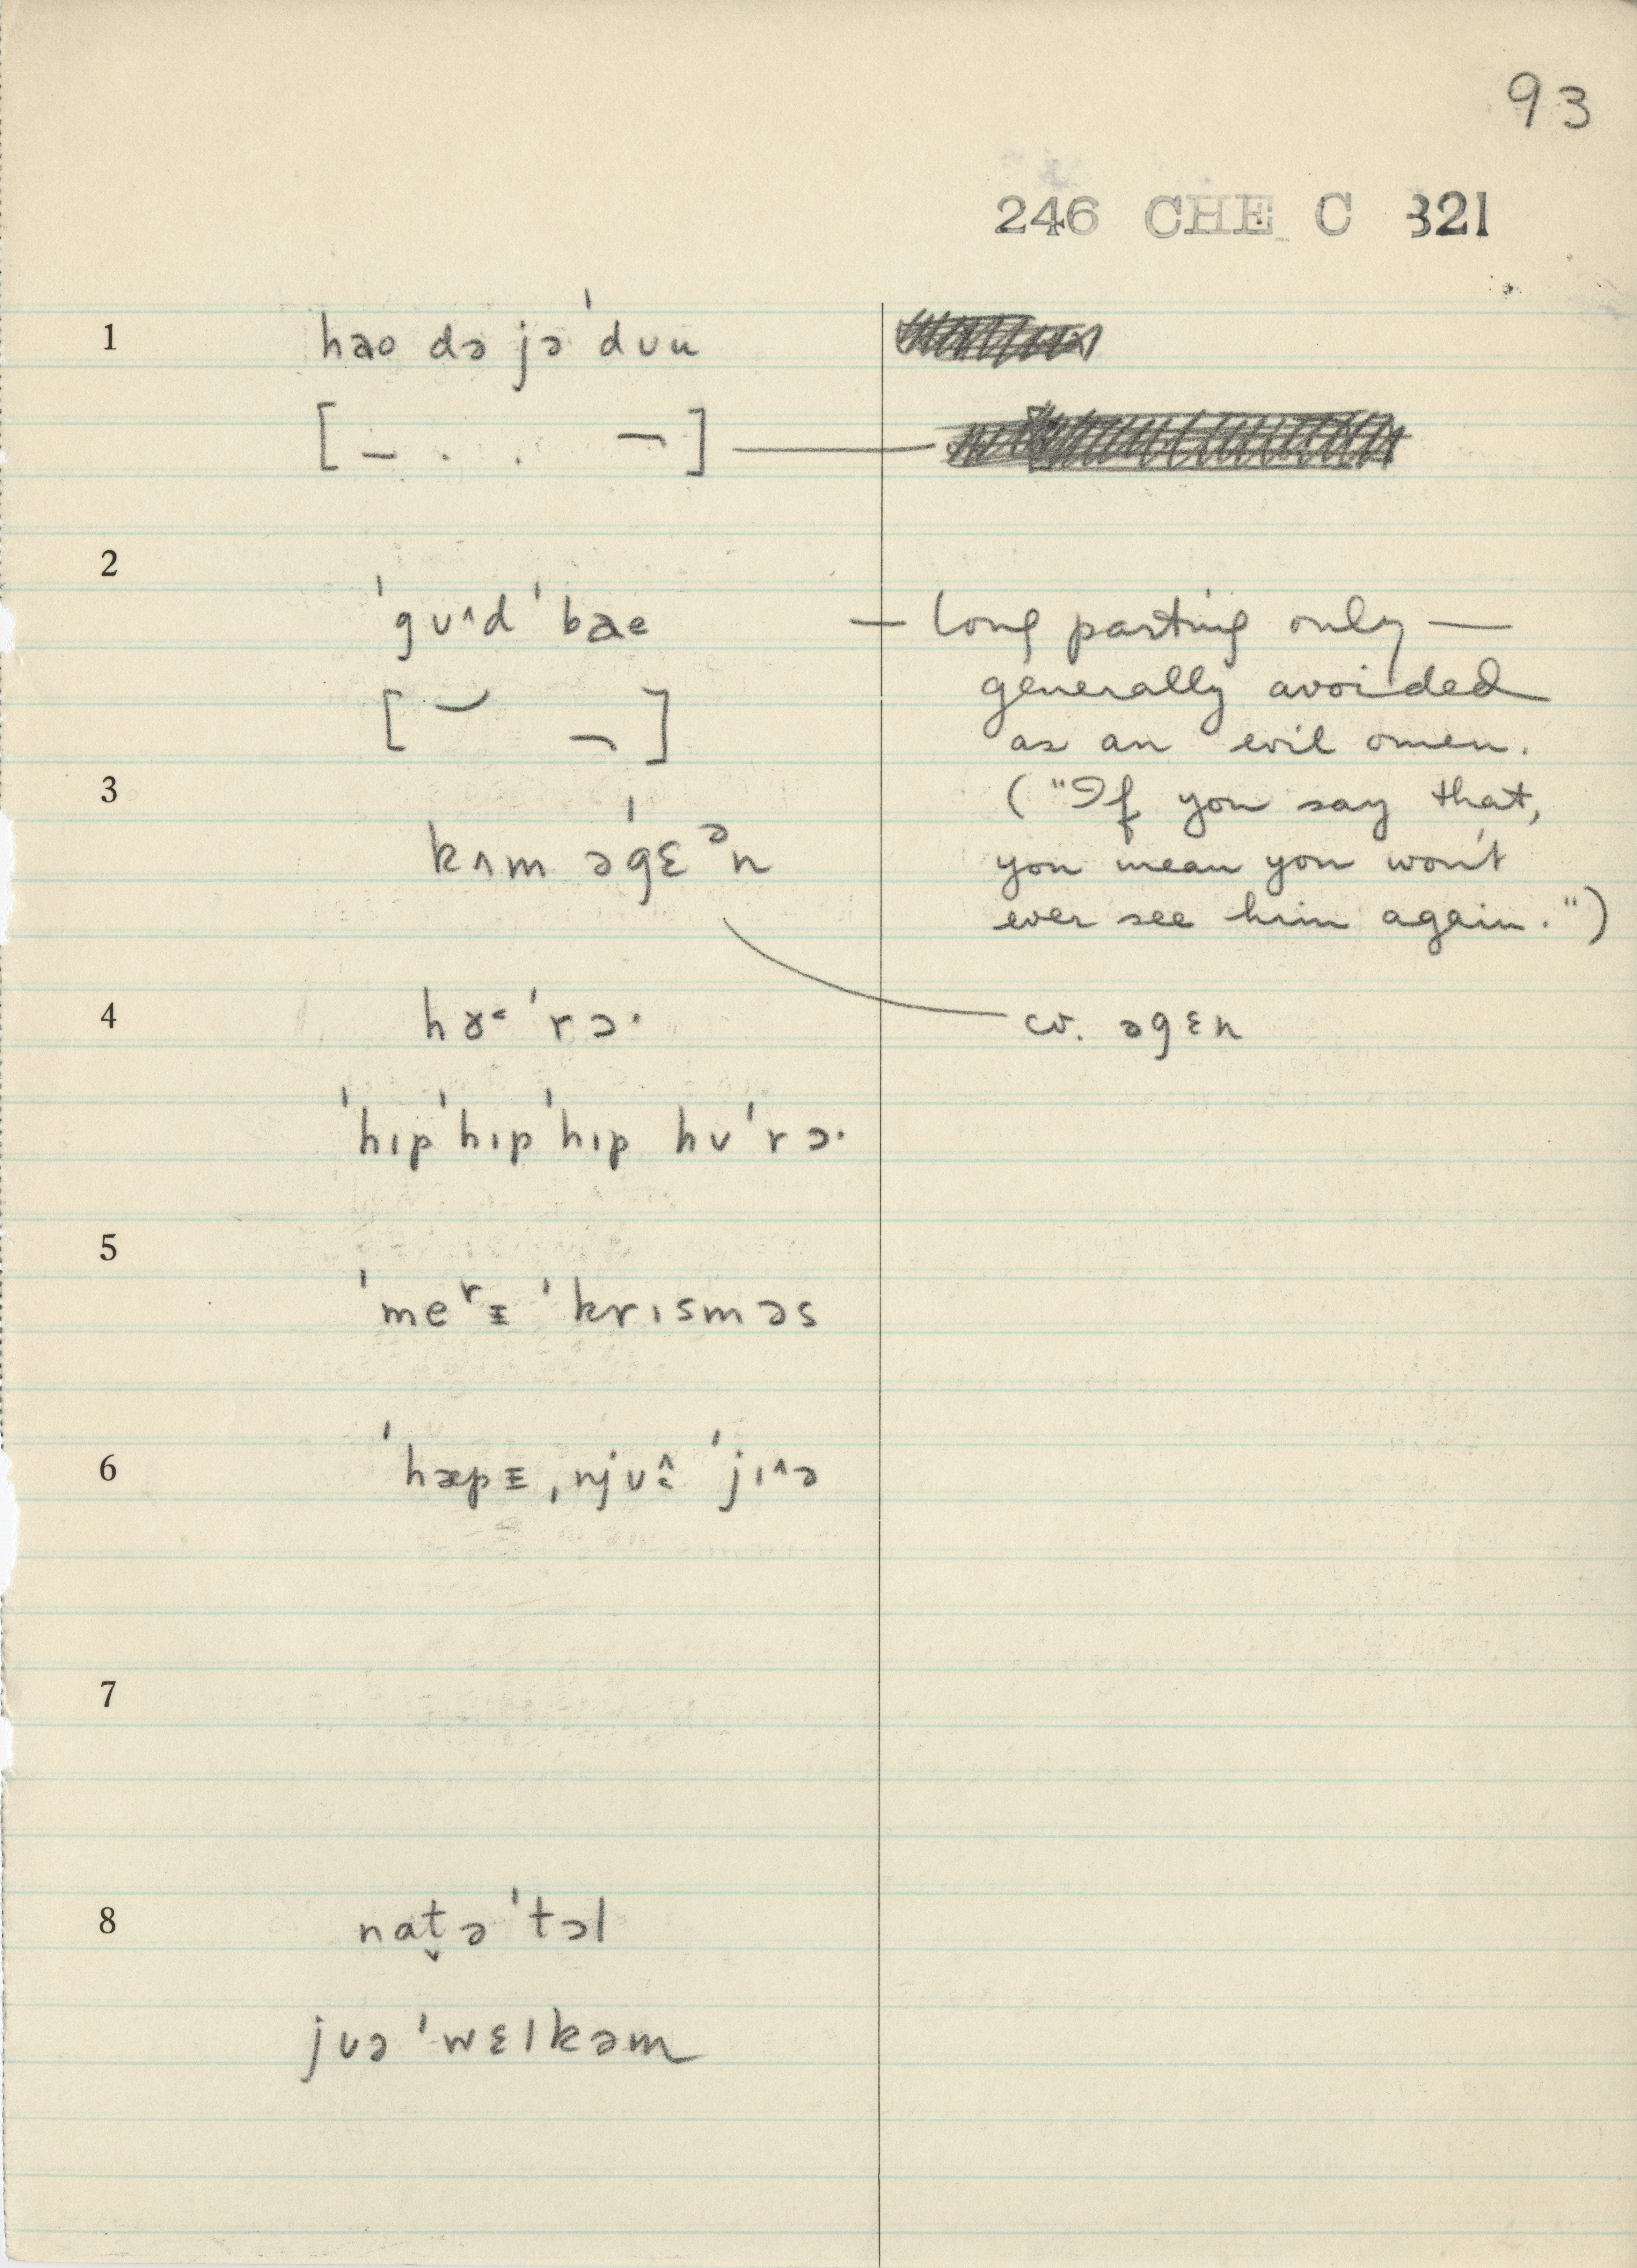 93
246 CHE C 321
1 hao də jə ˈdᴜu
[ – . . ¬ ]
2
ˈgᴜ^d ˈbae — long parting only —
[ ] generally avoided
as an evil omen.
3 ("If you say that,
kʌm əˈgɛᵊn you mean you won't
ever see him again.")
4 hɤ˂ ˈrɔ· cv. əgɛn
ˈhıpˈhıpˈhıp hᴜˈrɔ·
5
ˈmeʳɪ ˈkrısməs
6 ˈhæpɪ ˌnjᴜ ˈjı^ə
7
8 nat̬ə ˈtɔl
jᴜə ˈwɛlkəm